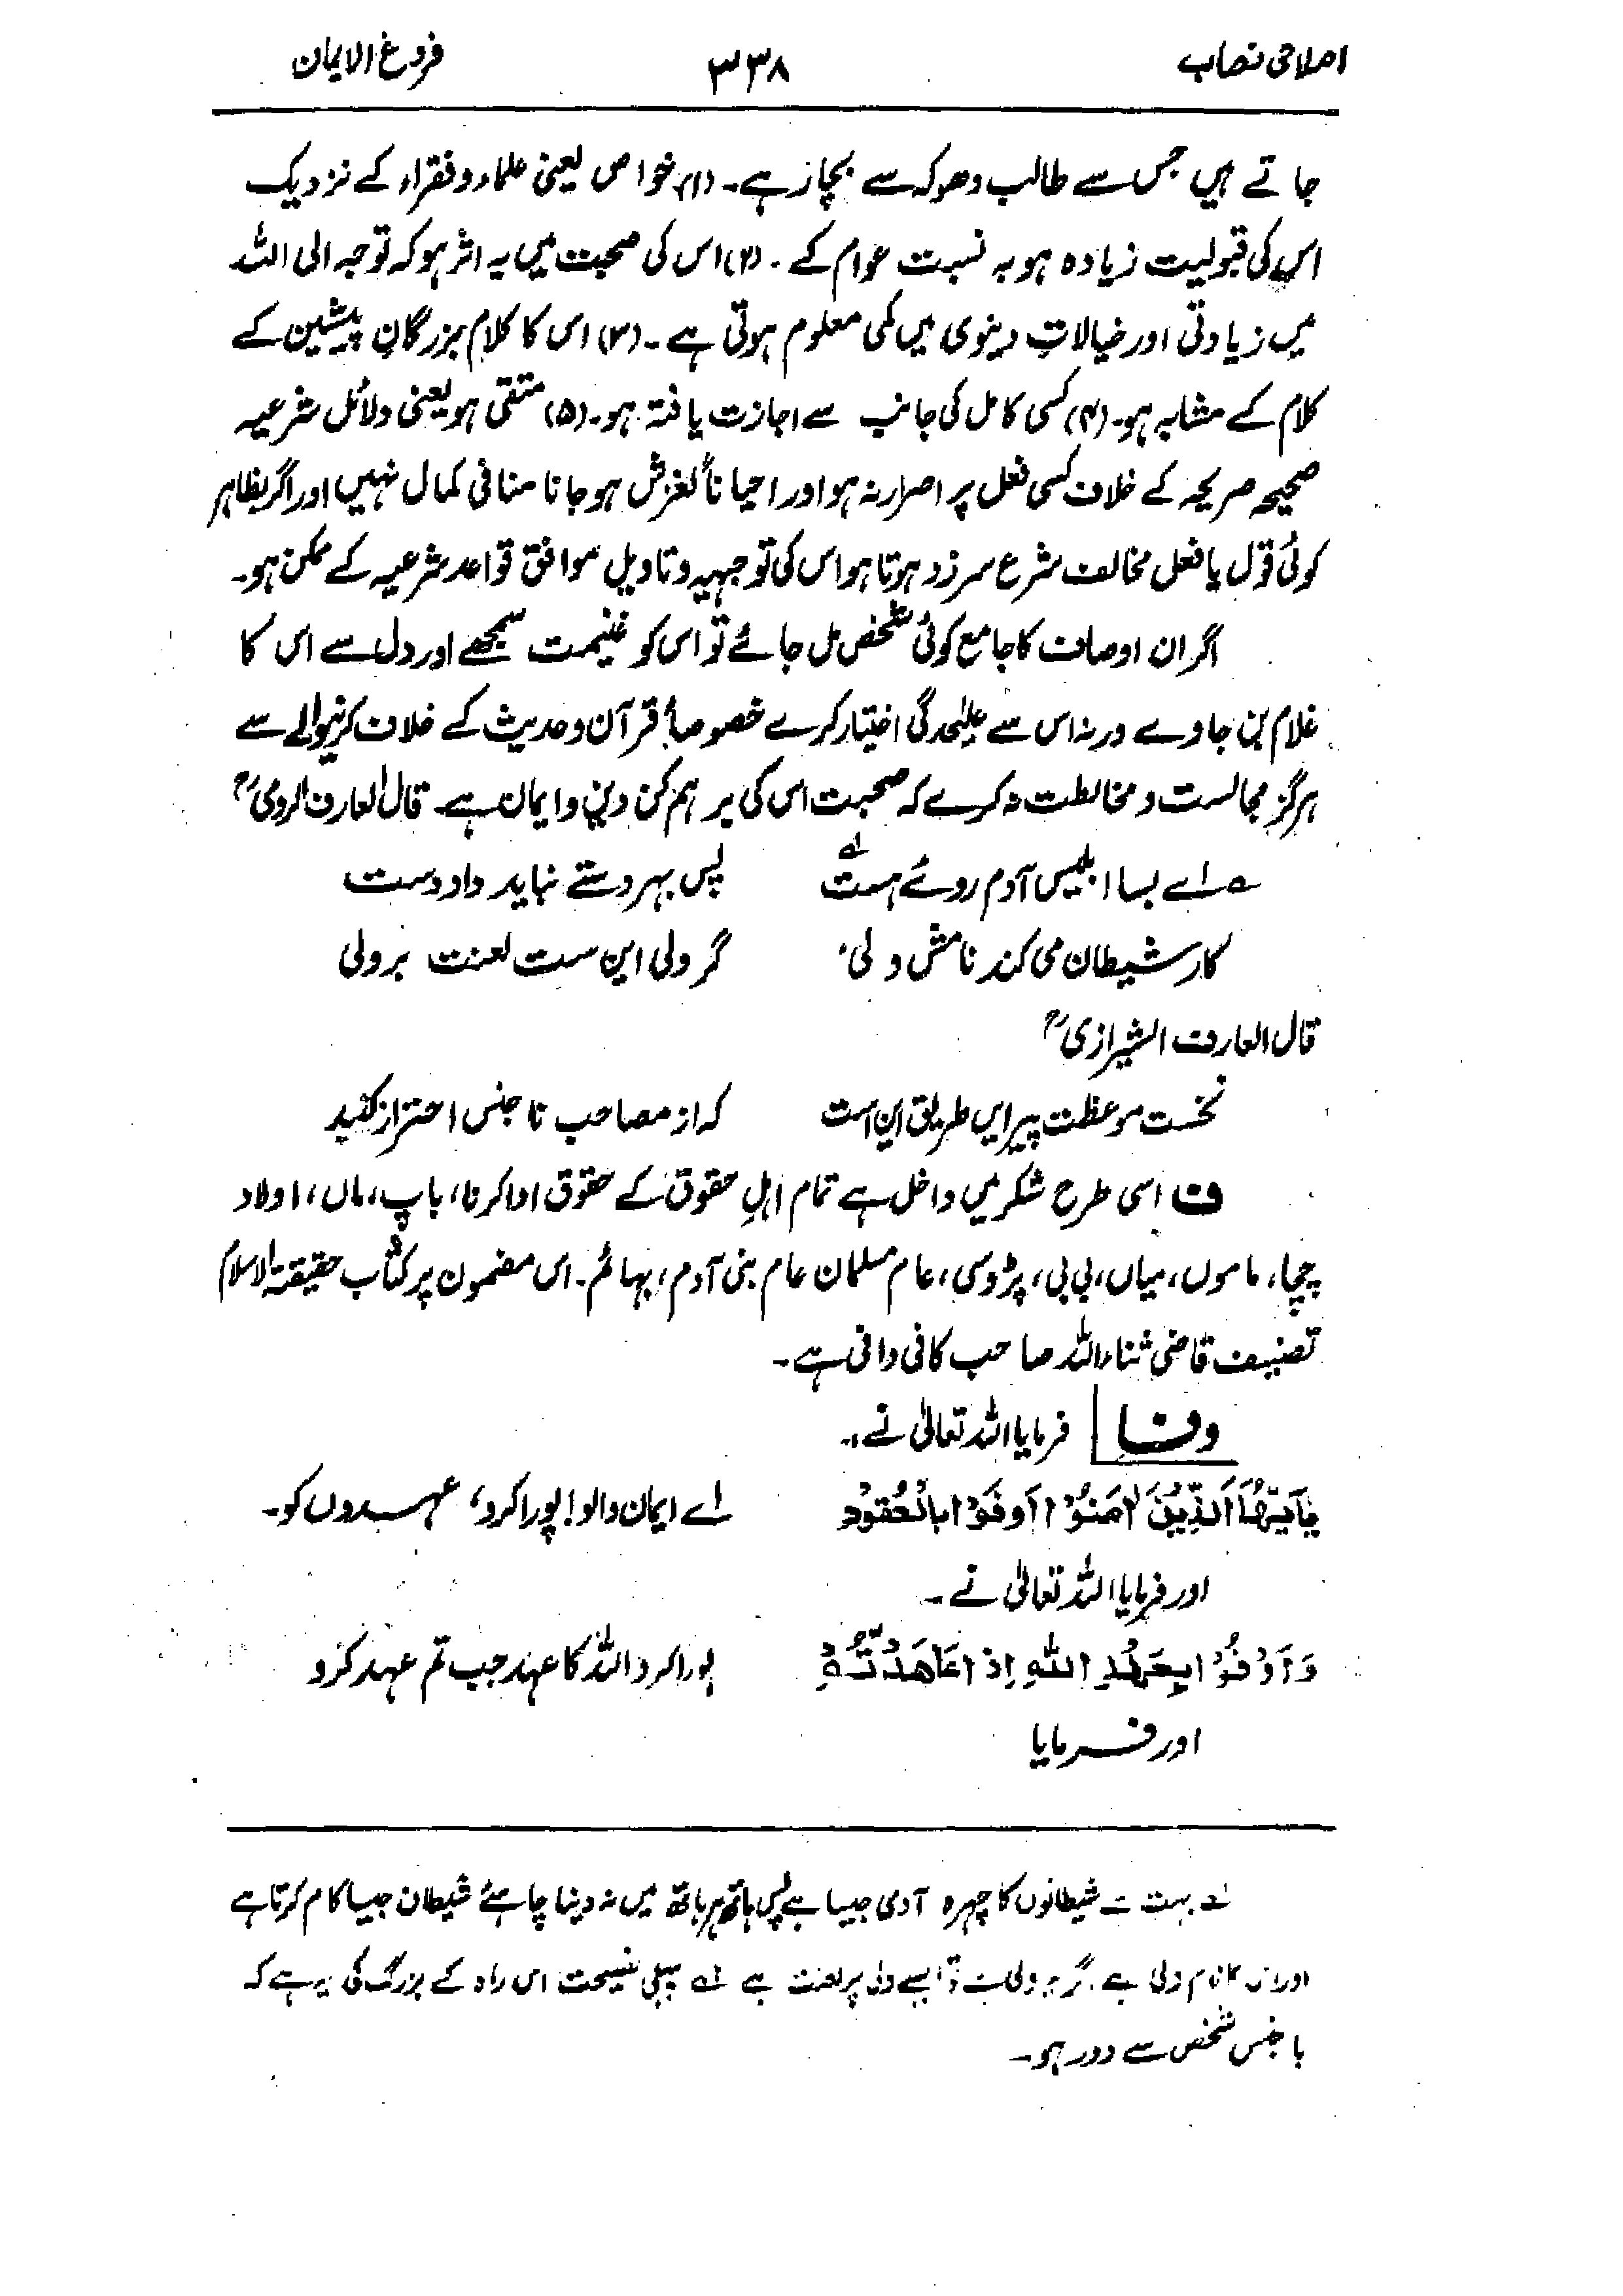 اصلاحی نصاب ۳۳۸ فروغ الایمان
جاتے ہیں جس سے طالب دھوکہ سے بچا رہے۔ (۱) خواص یعنی علماء و فقراء کے نزدیک
اس کی قبولیت زیادہ ہو بہ نسبت عوام کے۔ (۲) اس کی صحبت میں یہ اثر ہو کہ توجہ الی اللہ
میں زیادتی اور خیالاتِ دنیوی میں کمی معلوم ہوتی ہے۔ (۳) اس کا کلام بزرگانِ پیشین کے
کلام کے مشابہ ہو۔ (۴) کسی کامل کی جانب سے اجازت یافتہ ہو۔ (۵) متقی ہو یعنی دلائل شرعیہ
صحیحہ صریحہ کے خلاف کسی فعل پر اصرار نہ ہو اور احیاناً لغزش ہو جانا منافی کمال نہیں اور اگر بظاہر
کوئی قول یا فعل مخالف شرع سرزد ہوتا ہو اس کی توجیہہ و تاویل موافق قواعد شرعیہ کے ممکن ہو۔
اگر ان اوصاف کا جامع کوئی شخص مل جائے تو اس کو غنیمت سمجھے اور دل سے اس کا
غلام بن جاوے ورنہ اس سے علیٰحدگی اختیار کرے خصوصاً قرآن و حدیث کے خلاف کرنیوالے سے
ہرگز مجالست و مخالطت نہ کرے کہ صحبت اس کی برہم کن دین و ایمان ہے۔ قال العارف الرومیؒ
؎ اے بسا ابلیس آدم روئے ہست؂۱ پس بہر دستے نباید داد دست
کار شیطان می کند نامش ولی گر ولی این ست لعنت بر ولی
قال العارف الشیرازیؒ
نخست موعظت پیر ایں طریق این است کہ از مصاحب ناجنس احتراز کنید
ف اسی طرح شکر میں داخل ہے تمام اہلِ حقوق کے حقوق ادا کرنا، باپ، ماں، اولاد
چچا، ماموں، میاں، بی بی، پڑوسی، عام مسلمان عام بنی آدم، بہائم۔ اس مضمون پر کتاب حقیقۃ الاسلام
تصنیف قاضی ثناء اللہ صاحب کافی وافی ہے۔
وفا فرمایا اللہ تعالیٰ نے۔
یٰۤاَیُّهَا الَّذِیْنَ اٰمَنُوْا اَوْفُوْا بِالْعُقُوْدِ اے ایمان والو! پورا کرو، عہدوں کو۔
اور فرمایا اللہ تعالیٰ نے۔
وَاَوْفُوْا بِعَهْدِ اللّٰهِ اِذَا عَاهَدْتُّمْ پورا کرو اللہ کا عہد جب تم عہد کرو
اور فرمایا
؂۱ بہت سے شیطانوں کا چہرہ آدمی جیسا ہے پس ہاتھ ہر ہاتھ میں نہ دینا چاہئے شیطان جیسا کام کرتا ہے
اور اس کا نام ولی ہے۔ گر یہ ولی ہے تو ایسے ولی پر لعنت ہے ؂۲ پہلی نصیحت اس راہ کے بزرگ کی یہ ہے کہ
با جنس شخص سے دور ہو۔